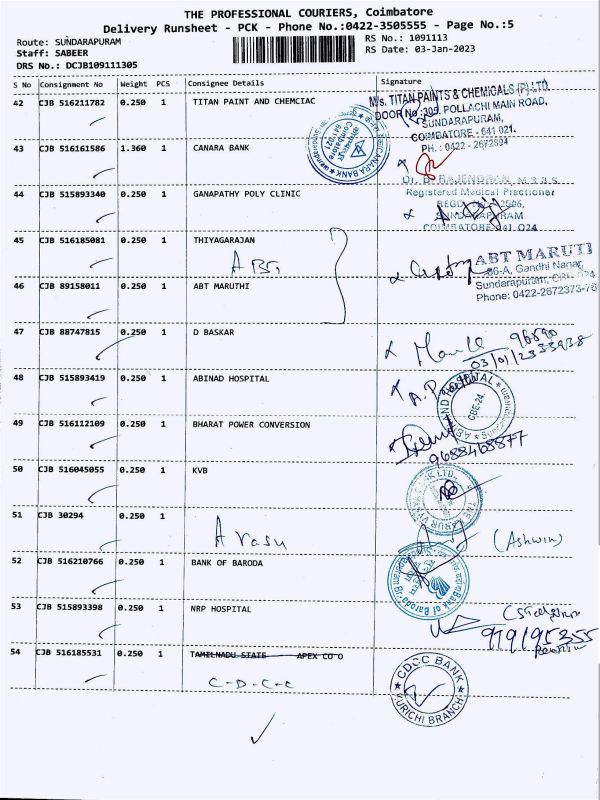 THE PROFESSIONAL COURIERS, Coimbatore
Delivery Runsheet - PCK - Phone No.:0422-3505555 - Page No.:5
Route: SUNDARAPURAM
Staff: SABEER
DRS No.: DCJB109111305
RS No.: 1091113
RS Date: 03-Jan-2023
S No Consignment No Weight PCS Consignee Details Signature
42 CJB 516211782 0.250 1 TITAN PAINT AND CHEMCIAC
M/s. TITAN PAINTS & CHEMICALS (P) LTD
DOOR No: 305, POLLACHI MAIN ROAD,
SUNDARAPURAM,
COIMBATORE - 641 021.
PH. : 0422 - 2672894
43 CJB 516161586 1.360 1 CANARA BANK
CANARA BANK
Coimbatore
641021
Dr. D. RAJENDRAN, M.B.B.S
Registered Medical Practioner
44 CJB 515893340 0.250 1 GANAPATHY POLY CLINIC
SUNDARAPURAM
COIMBATORE 641 024
45 CJB 516185081 0.250 1 THIYAGARAJAN
ABT
ABT MARUTI
86-A, Gandhi Nagar,
Sundarapuram, CBE
Phone: 0422-2672373-76
46 CJB 89158011 0.250 1 ABT MARUTHI
47 CJB 88747815 0.250 1 D BASKAR
03/01/23
48 CJB 515893419 0.250 1 ABINAD HOSPITAL
CBE-24.
49 CJB 516112109 0.250 1 BHARAT POWER CONVERSION
9688468877
50 CJB 516045055 0.250 1 KVB
51 CJB 30294 0.250 1
Arasu
(Ashwin)
52 CJB 516210766 0.250 1 BANK OF BARODA
Bank of Baroda
53 CJB 515893398 0.250 1 NRP HOSPITAL
54 CJB 516185531 0.250 1 TAMILNADU STATE APEX CO O
C-D-C-C
CDCC BANK
KURICHI BRANCH